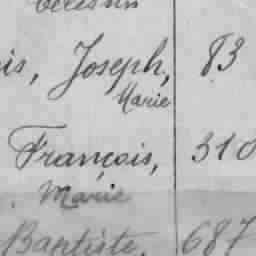 is, Joseph, 83
Marie
François, 310
Marie
Baptiste, 687